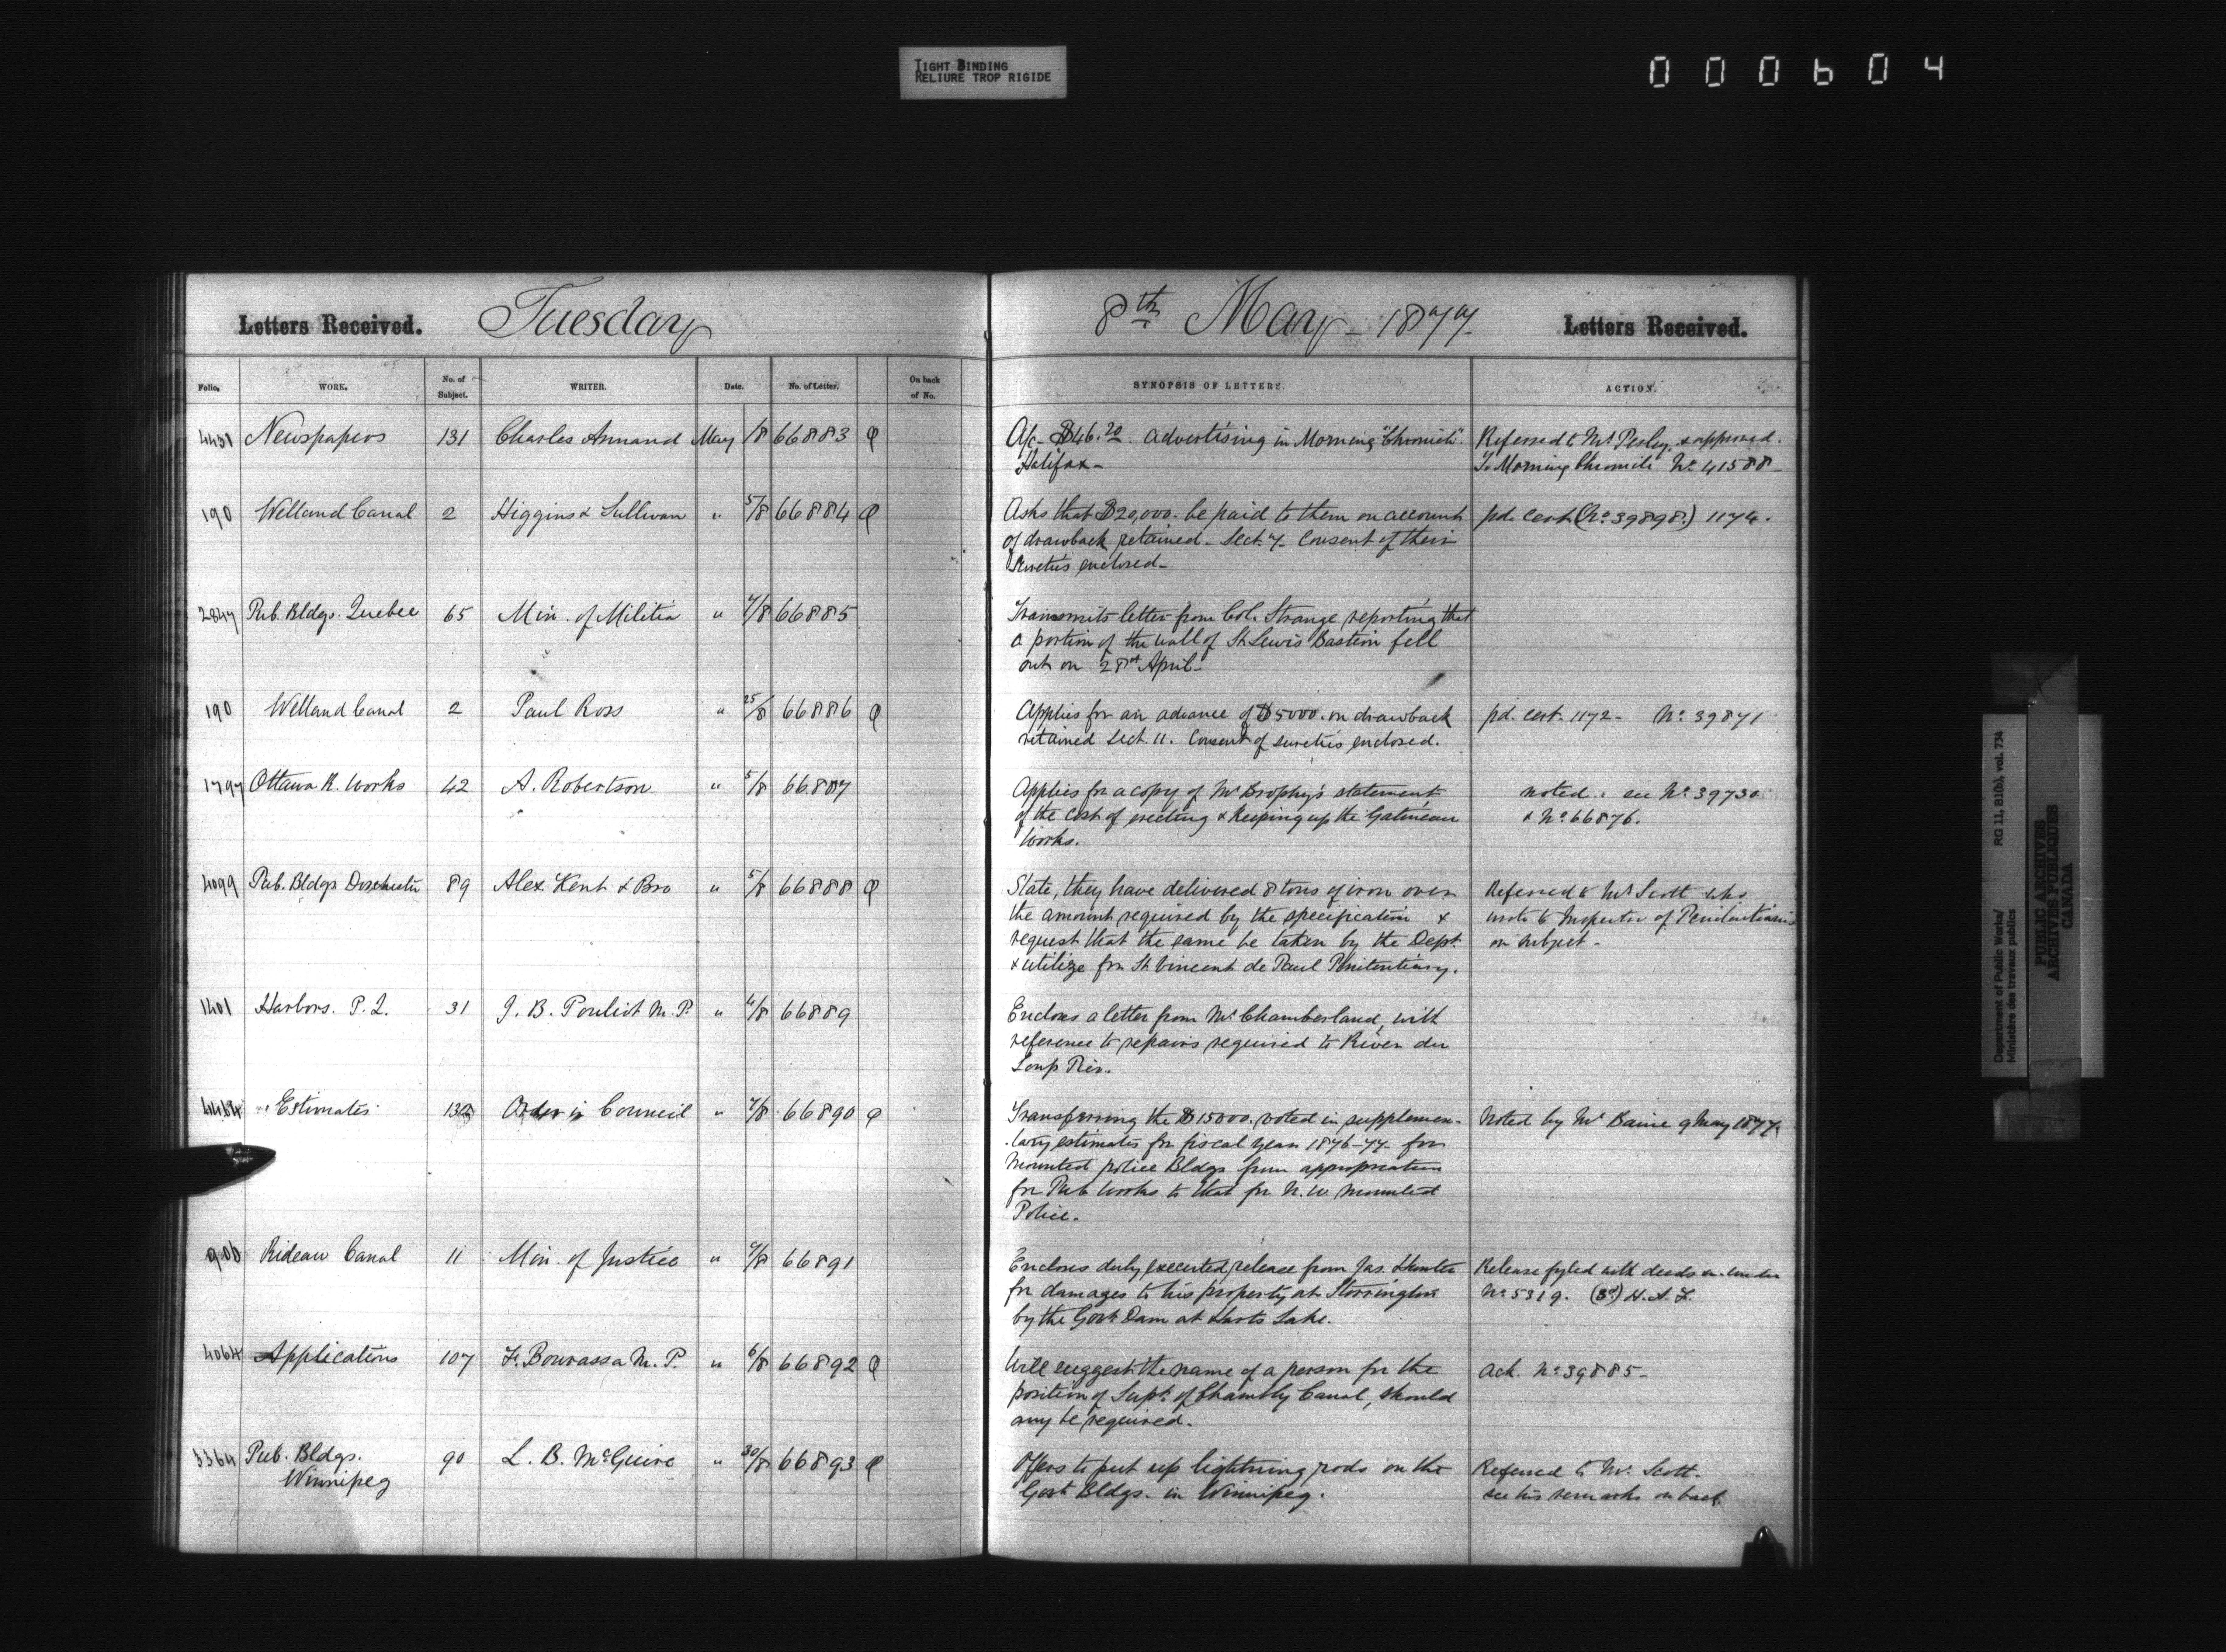 TIGHT BINDING
RELIURE TROP RIGIDE
000604
Letters Received. Tuesday
8th May - 1877. Letters Received.
Folio. WORK. No. of Subject. WRITER. Date. No. of Letter. On back of No. SYNOPSIS OF LETTERS. ACTION.
4431 Newspapers 131 Charles Annand May 1/8 66883 Q
A/c - $46.20. advertising in Morning "Chronicle". Referred to Mr. & approved.
Halifax - To Morning Chronicle No. 41588 -
190 Welland Canal 2 Higgins & Sullivan " 5/8 66884 Q
Asks that $20,000. be paid to them on account pd. Cert (No. 39898.) 1174.
of drawback retained - Sect. 7 - Consent of their
Sureties enclosed -
2847 Pub. Bldgs. Quebec 65 Min. of Militia " 7/8 66885
Transmits letter from Col. Strange reporting that
a portion of the wall of St. Lewis Bastion fell
out on April -
190 Welland Canal 2 Paul Ross " 25/8 66886 Q
Applies for an advance of $5000. on drawback pd. cert. 1172 - No. 39871
retained Sect. 11. Consent of sureties enclosed.
1797 Ottawa R. Works 42 A. Robertson " 5/8 66887
Applies for a copy of Mr. Brophy's statement noted. see No. 39730
of the cost of erecting & keeping up the Gatineau & No. 66876.
Works.
4099 Pub. Bldgs Dorchester 89 Alex. Kent & Bro " 5/8 66888 Q
State, they have delivered 8 tons of iron over Referred to Mr. Scott who
the amount required by the specification & wrote to Inspector of Penitentiaries
request that the same be taken by the Dept. on subject -
& utilize for St. Vincent de Paul Penitentiary.
1401 Harbors. P. Q. 31 J. B. Pouliot M. P. " 4/8 66889
Encloses a letter from Mr. Chamberland, with
reference to repairs required to River du
Loup Pier.
Estimates Order in Council " 7/8 66890 Q
Transferring the $15000. voted in supplemen- Noted by Mr. Baine 9 May 1877.
-tary estimates for fiscal year 1876-77 - for
Mounted police Bldgs from appropriation
for Pub Works to that for N. W. Mounted
Police.
Rideau Canal 11 Min. of Justice " 7/8 66891
Encloses duly executed release from Jas. Hunter Release fyled with deeds under
for damages to his property at Storrington No. 5319. H. A. F.
by the Govt. Dam at Harts Lake.
4064 Applications 107 F. Bourassa M. P. " 6/8 66892 Q
Will suggest the name of a person for the Ack. No. 39885 -
position of Supt. of Chambly Canal, should
any be required.
3364 Pub. Bldgs. 90 L. B. McGuire " 30/8 66893 Q
Winnipeg
Offers to put up lightning rods on the Referred to Mr. Scott -
Govt Bldgs. in Winnipeg. see his remarks on back
Department of Public Works/
Ministère des travaux publics
RG 11, B1(b), vol. 734
PUBLIC ARCHIVES
ARCHIVES PUBLIQUES
CANADA